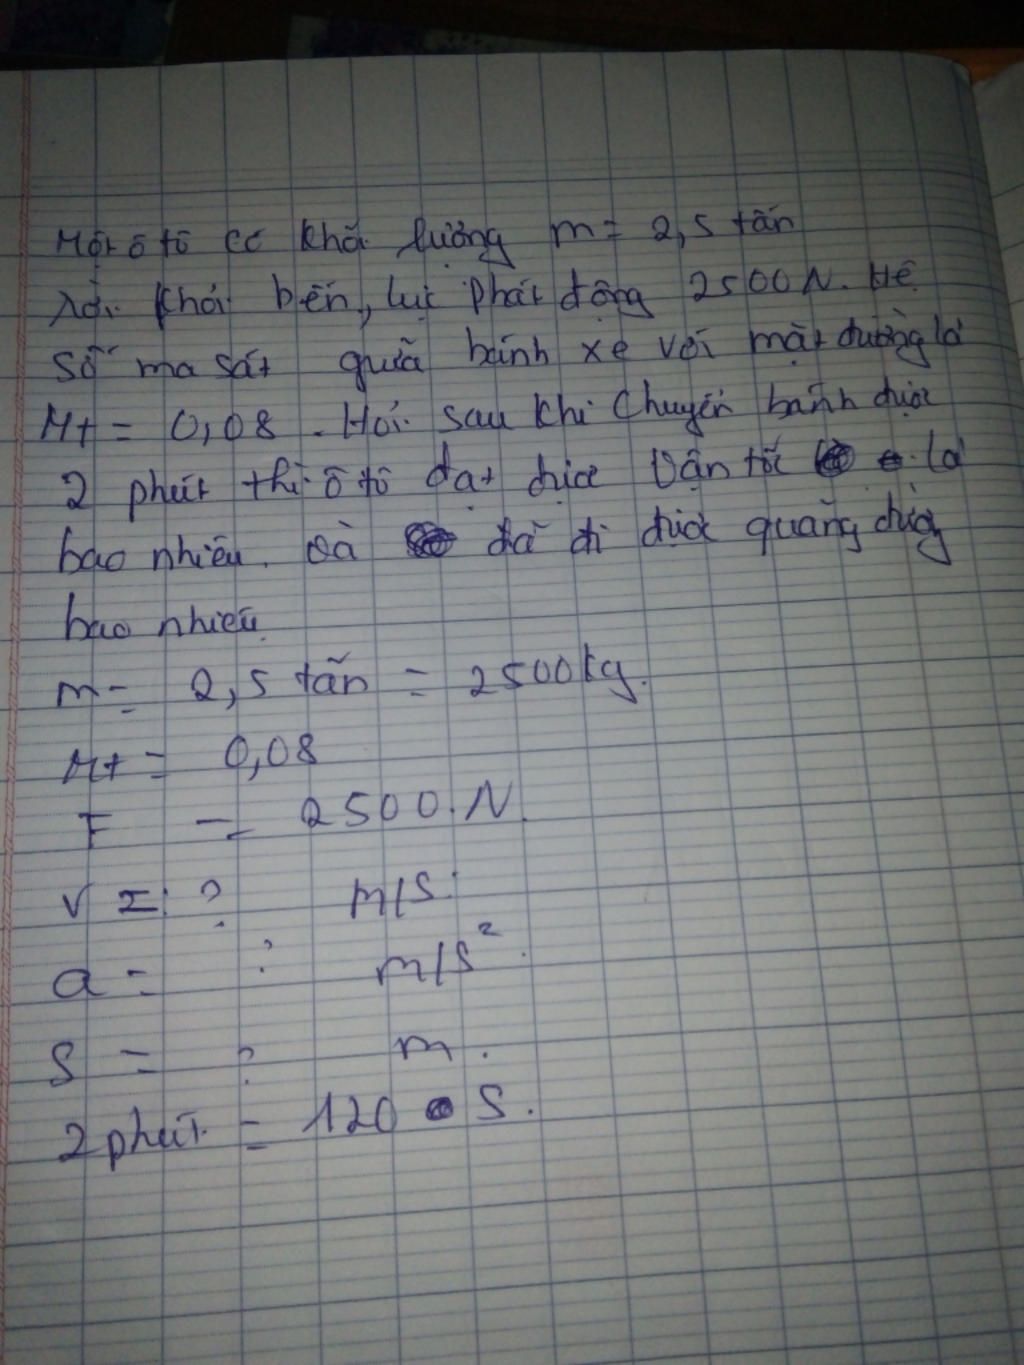 Một ô tô có khối lượng m = 2,5 tấn
rời khỏi bến, lực phát động 2500N. Hệ
số ma sát giữa bánh xe với mặt đường là
μt = 0,08. Hỏi sau khi chuyển bánh được
2 phút thì ô tô đạt được vận tốc là
bao nhiêu. và đã đi được quãng đường
bao nhiêu.
m = 2,5 tấn = 2500kg.
μt = 0,08
F = 2500.N
v = ? m/s.
a = ? m/s².
S = ? m.
2 phút = 120 S.